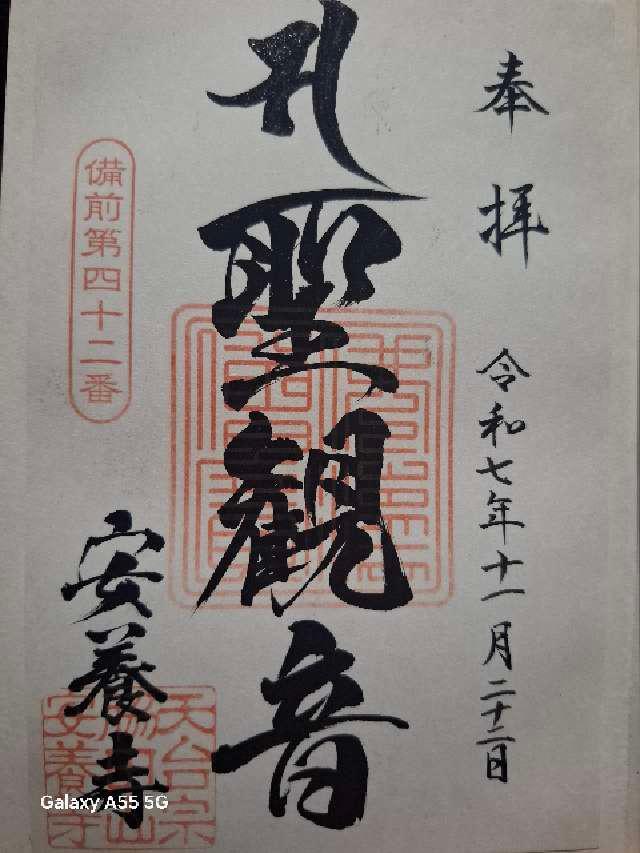 奉拝
令和七年十一月二十二日
聖観音
備前第四十二番
安養寺
天台宗
安養寺
Galaxy A55 5G